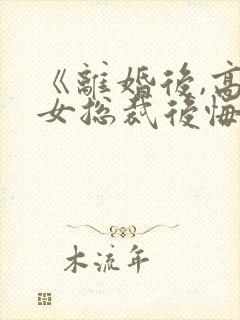 《離婚後,高
女総裁後悔
木流年